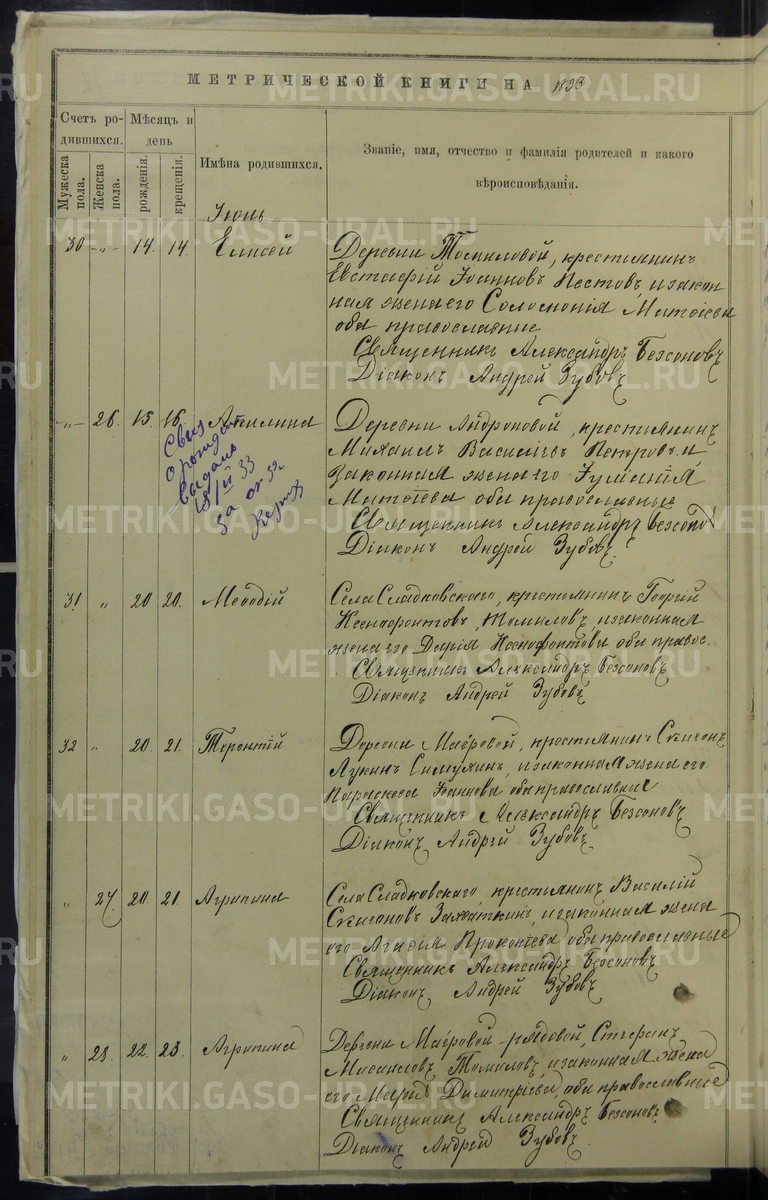 МЕТРИЧЕСКОЙ КНИГИ НА 1893
Счетъ родившихся.
Мѣсяцъ и день
Имѣна родившихся.
Званіе, имя, отчество и фамилія родителей и какого
вѣроисповѣданія.
Мужеска пола.
Женска пола.
рожденія.
крещенія.
Іюль
30 -"- 14. 14. Елисей
Деревни Томиловой, крестьянинъ
Евстафій Іоанновъ Пестовъ, и закон
ная жена его Соломонія Матѳіева
оба православные
Священникъ Александръ Безсоновъ
Діаконъ Андрей Зубовъ
-"- 26. 15. 16. Акилина
Деревни Андроновой, крестьянинъ
Михаилъ Васильевъ Петровъ и
законная жена его Іуліанія
Матѳіева оба православные
Священникъ Александръ Безсоно
Діаконъ Андрей Зубовъ
о рожден
выдано
33
за № 32
31 " 20 20. Меѳодій
Села Сладковскаго, крестьянинъ Георгій
Ксенофонтовъ Томиловъ и законная
жена его Дарія Ксенофонтова оба правос.
Священникъ Александръ Безсоновъ
Діаконъ Андрей Зубовъ
32 " 20 21. Терентій
Деревни Маёровой, крестьянинъ Стефанъ
Лукинъ и законная жена его
Параскева Іоаннова оба православные
Священникъ Александръ Безсоновъ
Діаконъ Андрей Зубовъ.
" 27. 20. 21. Агрипина
Села Сладковскаго крестьянинъ Василій
Стефановъ и законная жена
его Агафія Прокопьева оба православные
Священникъ Александръ Безсоновъ
Діаконъ Андрей Зубовъ
" 28. 22. 23. Агрипина
Деревни Маёровой рядовой, Стефанъ
Томиловъ и законная жена
его Марія Димитріева, оба православные
Священникъ Александръ Безсоновъ
Діаконъ Андрей Зубовъ.
METRIKI.GASO-URAL.RU